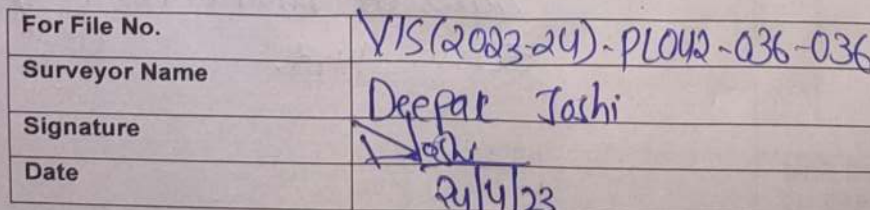 For File No. VIS(2023-24)-PL042-036-036
Surveyor Name Deepak Joshi
Signature DJoshi
Date 24/4/23